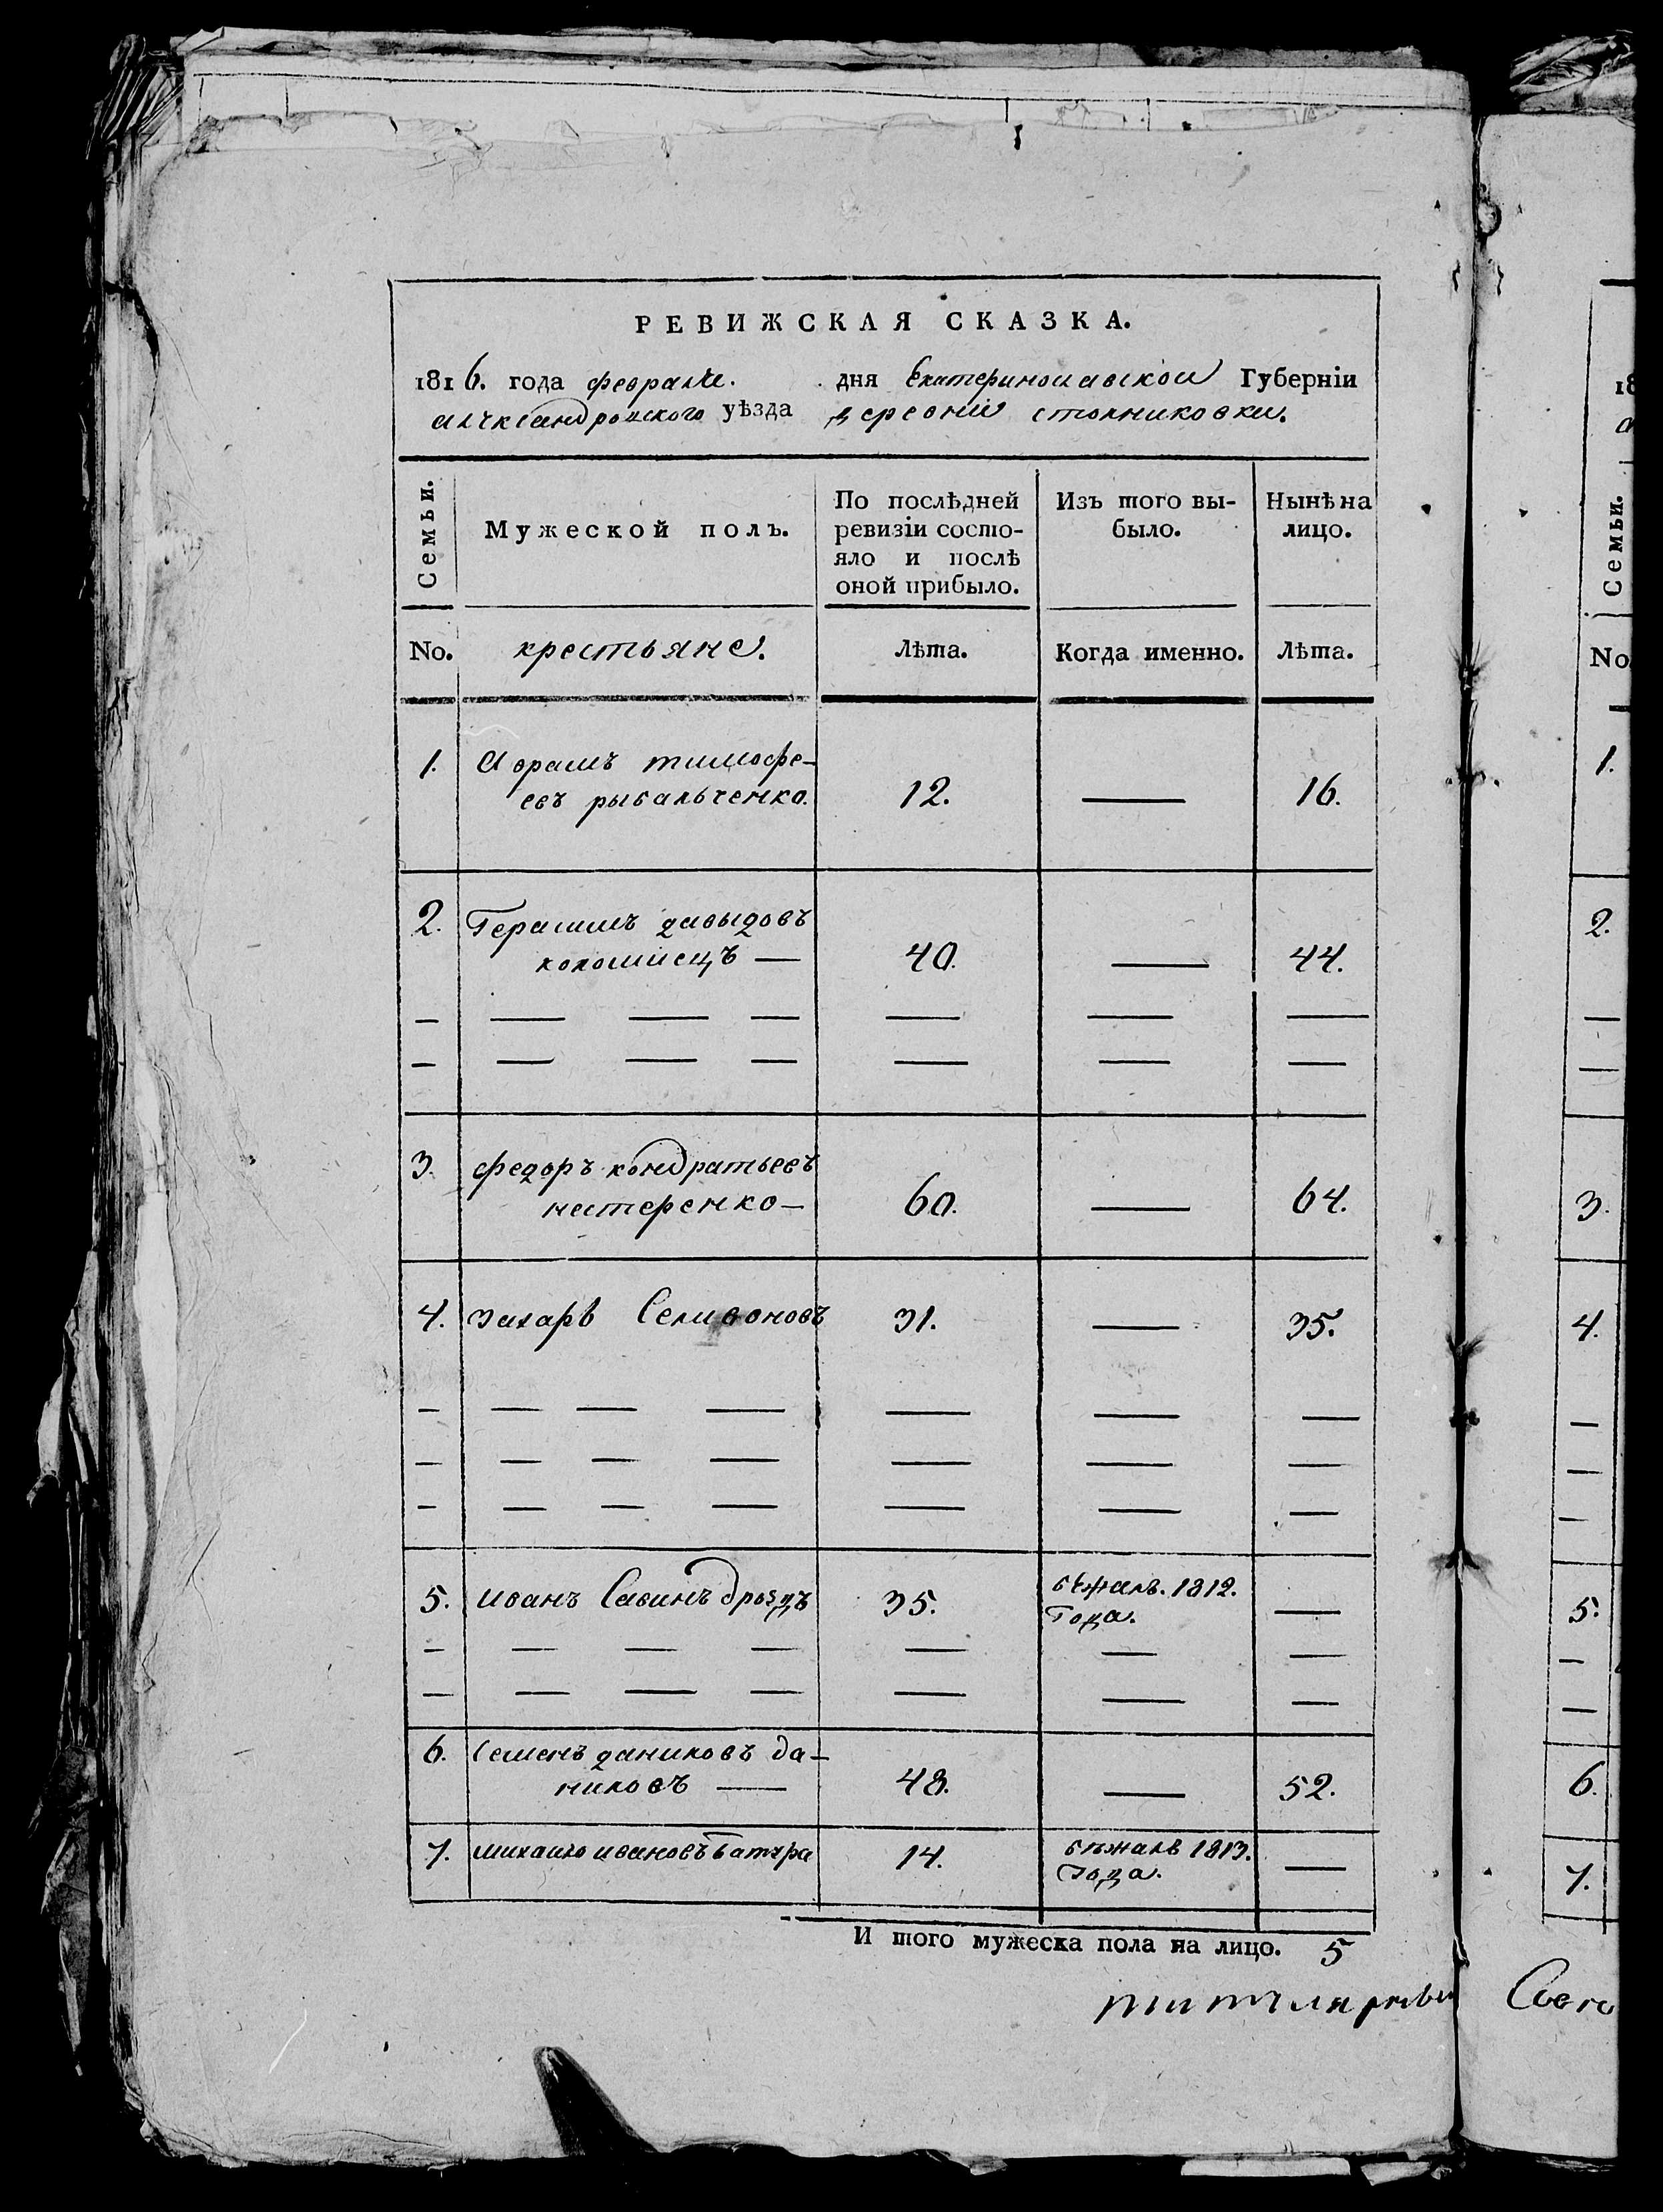 РЕВИЖСКАЯ СКАЗКА.
1816. года февраля. дня Екатеринославской Губернiи
александровского уѣзда деревни столниковки.
Семьи.
Мужеской полъ.
По послѣдней
ревизiи состо-
яло и послѣ
оной прибыло.
Изъ того вы-
было.
Нынѣ на
лицо.
No. крестьяне. Лѣта. Когда именно. Лѣта.
1. Аврамъ тимофе-
евъ рыбальченко. 12. — 16.
2. Герасимъ давыдовъ
коломиецъ — 40. — 44.
3. федоръ кондратьевъ
нестеренко — 60. — 64.
4. захаръ Селивоновъ 31. — 35.
5. иванъ Савинъ дроздъ 35. бѣжалъ. 1812. —
года.
6. Семенъ даниловъ да-
ниловъ — 48. — 52.
7. михаило ивановъ батура 14. бѣжалъ 1813. —
года.
И того мужеска пола на лицо. 5
18
Семьи.
No
1.
2.
3.
4.
5.
6.
7.